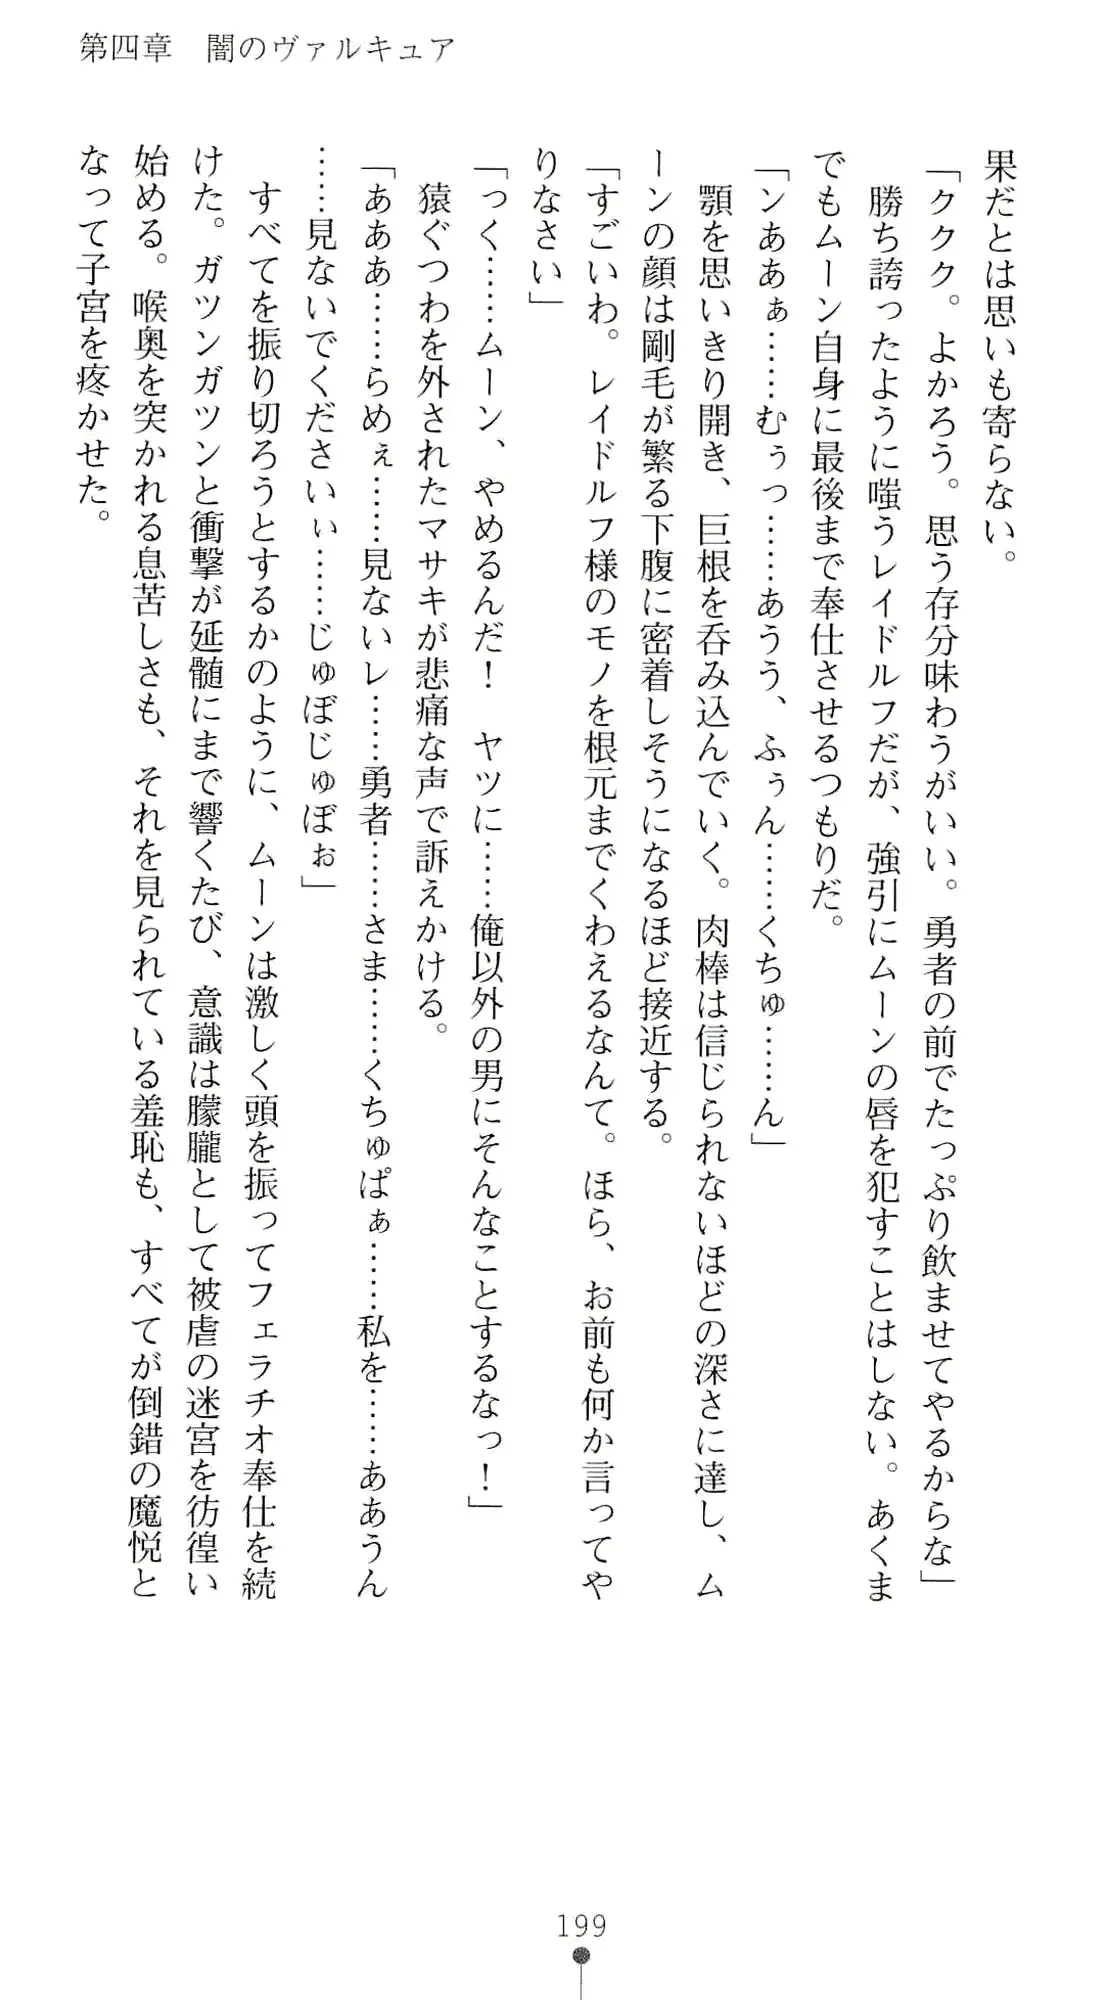 第四章　闇のヴァルキュア
果だとは思いも寄らない。
「ククク。よかろう。思う存分味わうがいい。勇者の前でたっぷり飲ませてやるからな」
　勝ち誇ったように嗤うレイドルフだが、強引にムーンの唇を犯すことはしない。あくま
でもムーン自身に最後まで奉仕させるつもりだ。
「ンああぁ……むぅっ……あうう、ふぅん……くちゅ……ん」
　顎を思いきり開き、巨根を呑み込んでいく。肉棒は信じられないほどの深さに達し、ム
ーンの顔は剛毛が繁る下腹に密着しそうになるほど接近する。
「すごいわ。レイドルフ様のモノを根元までくわえるなんて。ほら、お前も何か言ってや
りなさい」
「っく……ムーン、やめるんだ！　ヤツに……俺以外の男にそんなことするなっ！」
　猿ぐつわを外されたマサキが悲痛な声で訴えかける。
「あああ……らめぇ……見ないレ……勇者……さま……くちゅぱぁ……私を……ああうん
……見ないでくださいぃ……じゅぼじゅぼぉ」
　すべてを振り切ろうとするかのように、ムーンは激しく頭を振ってフェラチオ奉仕を続
けた。ガツンガツンと衝撃が延髄にまで響くたび、意識は朦朧として被虐の迷宮を彷徨い
始める。喉奥を突かれる息苦しさも、それを見られている羞恥も、すべてが倒錯の魔悦と
なって子宮を疼かせた。
199